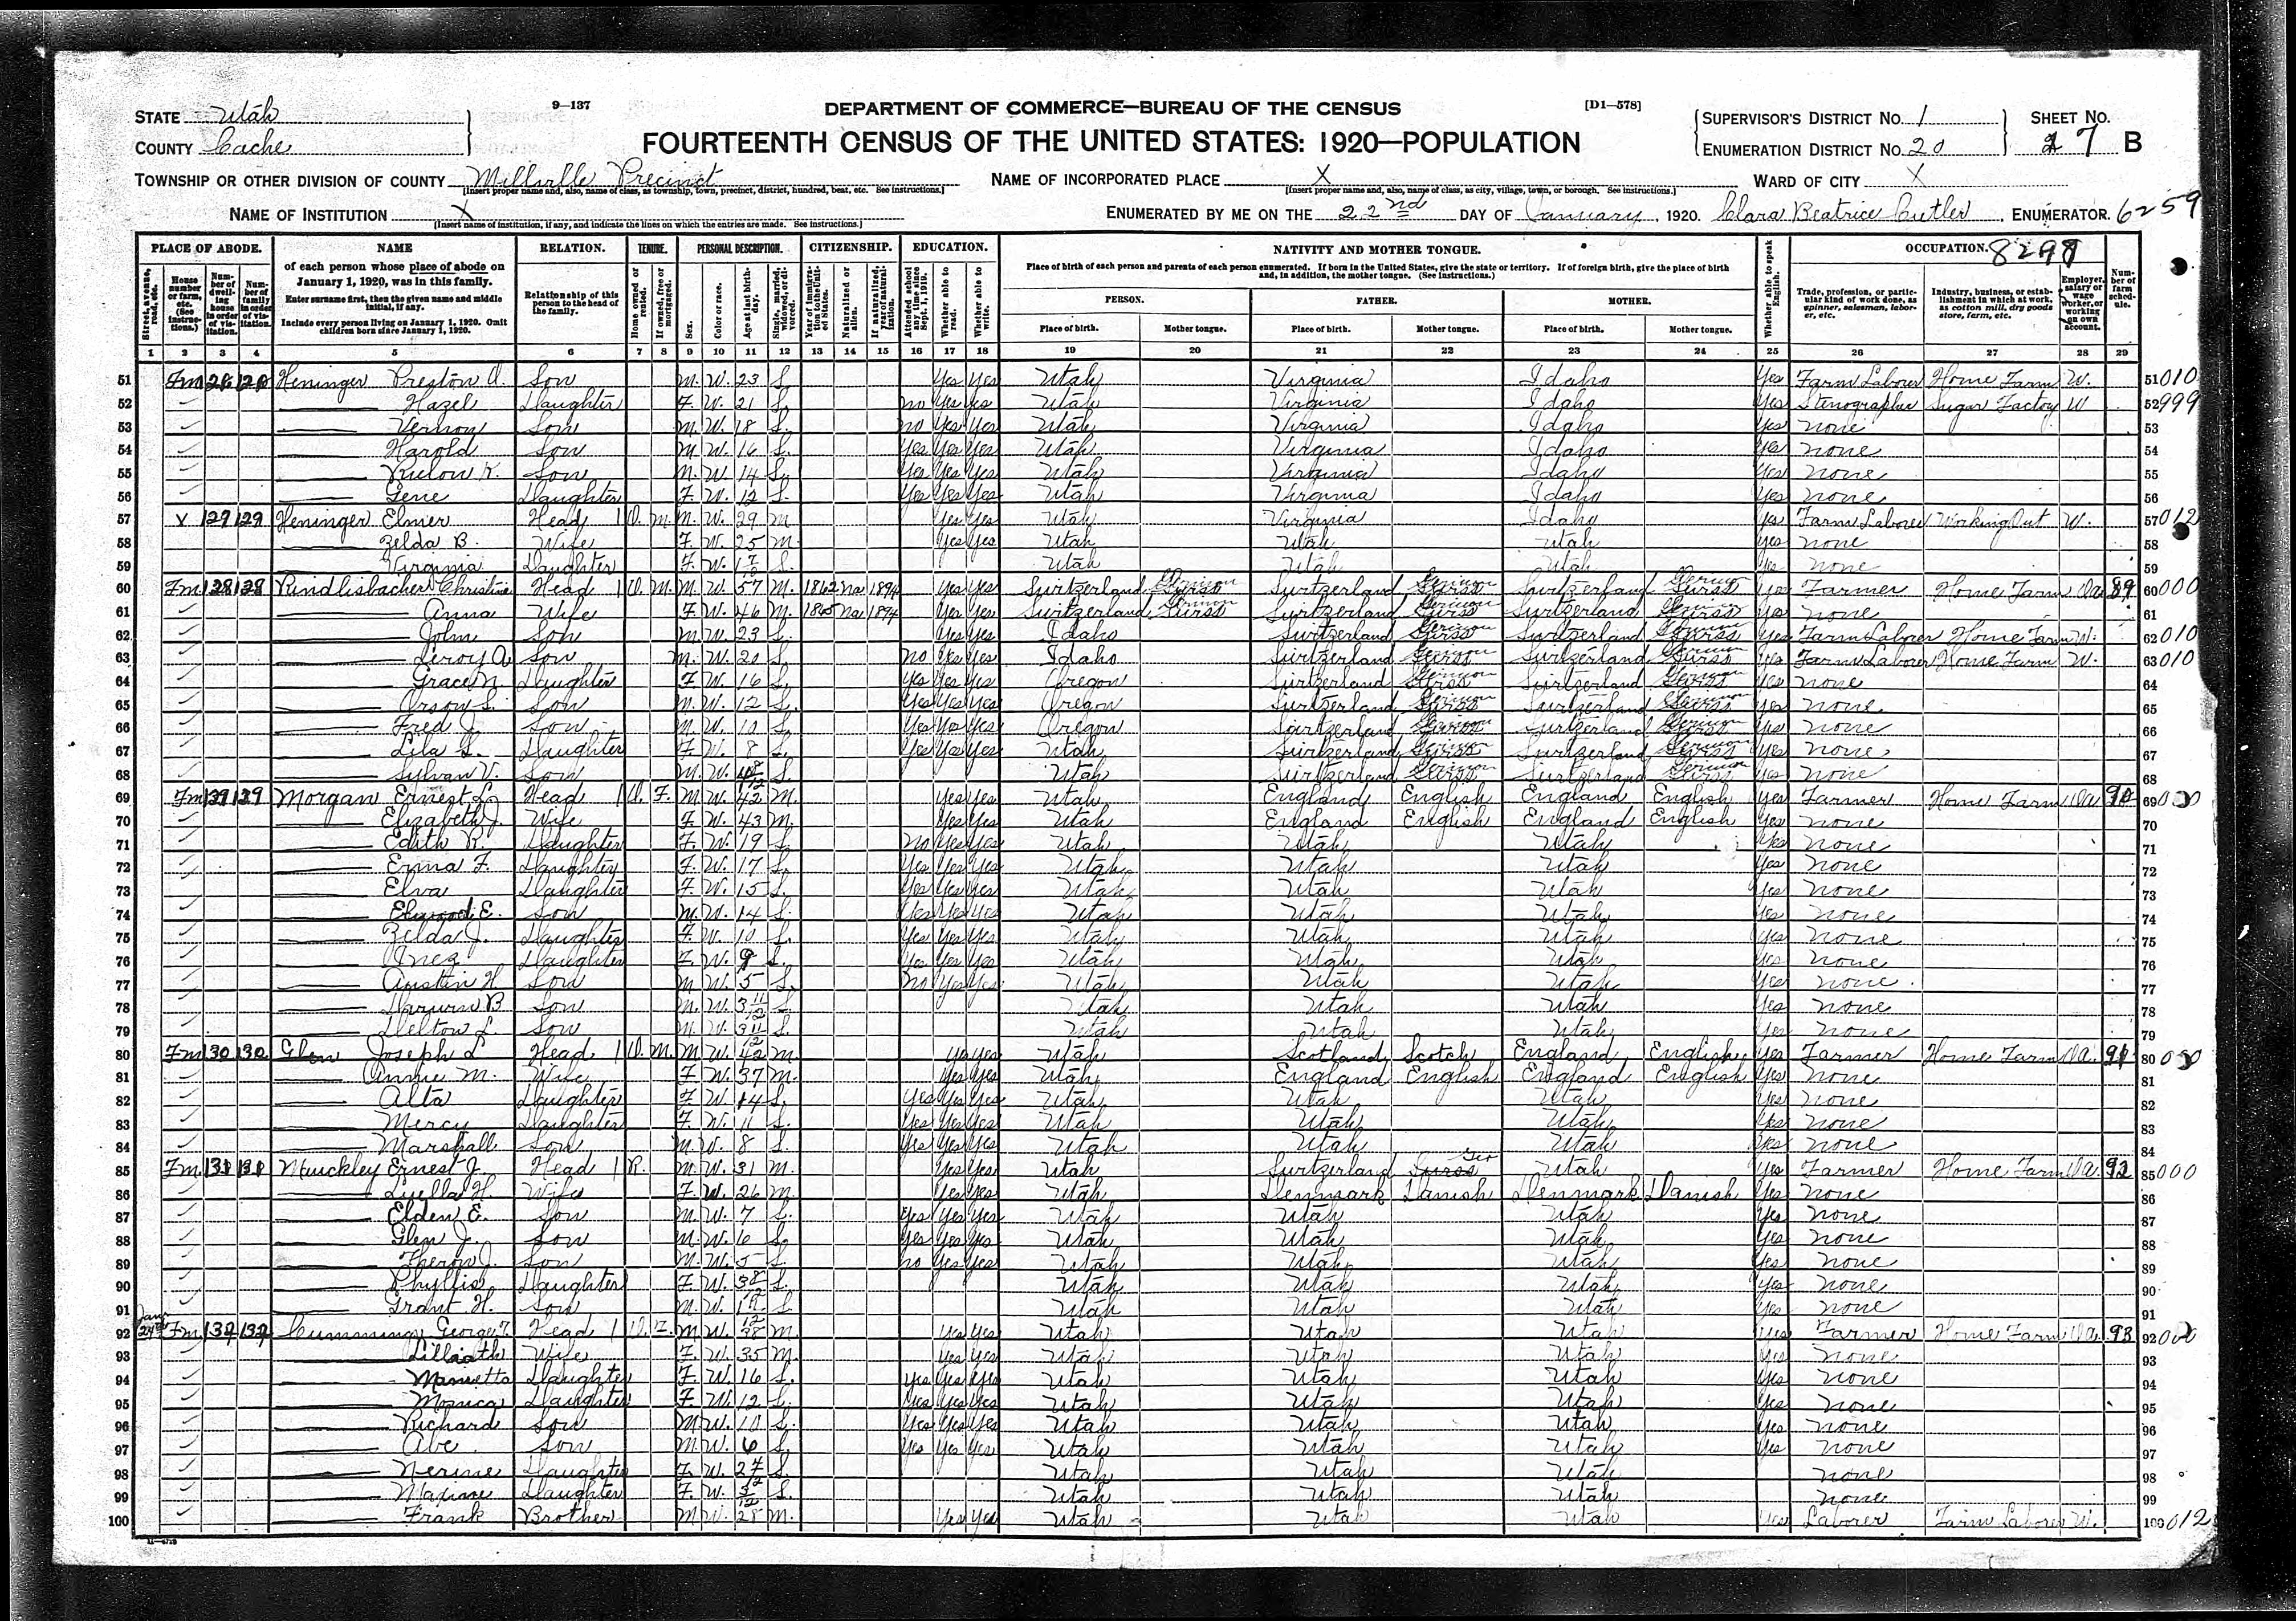 9—137
DEPARTMENT OF COMMERCE—BUREAU OF THE CENSUS
[D1—578]
STATE Utah
COUNTY Cache
FOURTEENTH CENSUS OF THE UNITED STATES: 1920—POPULATION
SUPERVISOR'S DISTRICT No. 1
ENUMERATION DISTRICT No. 20
SHEET No.
7 B
TOWNSHIP OR OTHER DIVISION OF COUNTY Millville Precinct
[Insert proper name and, also, name of class, as township, town, precinct, district, hundred, beat, etc. See instructions.]
NAME OF INCORPORATED PLACE X
[Insert proper name and, also, name of class, as city, village, town, or borough. See instructions.]
WARD OF CITY X
NAME OF INSTITUTION X
[Insert name of institution, if any, and indicate the lines on which the entries are made. See instructions.]
ENUMERATED BY ME ON THE 22nd DAY OF January, 1920. Clara Beatrice Cutler, ENUMERATOR. 6259
PLACE OF ABODE. NAME RELATION. TENURE. PERSONAL DESCRIPTION. CITIZENSHIP. EDUCATION. NATIVITY AND MOTHER TONGUE. OCCUPATION.
of each person whose place of abode on January 1, 1920, was in this family.
Enter surname first, then the given name and middle initial, if any.
Include every person living on January 1, 1920. Omit children born since January 1, 1920.
Relationship of this person to the head of the family.
Place of birth of each person and parents of each person enumerated. If born in the United States, give the state or territory. If of foreign birth, give the place of birth and, in addition, the mother tongue. (See instructions.)
PERSON. FATHER. MOTHER.
Place of birth. Mother tongue. Place of birth. Mother tongue. Place of birth. Mother tongue.
1 2 3 4 5 6 7 8 9 10 11 12 13 14 15 16 17 18 19 20 21 22 23 24 25 26 27 28 29
51 Fm 128 128 Heninger Preston A. Son M. W. 23 S. Yes Yes Utah Virginia Idaho Yes Farm Laborer Home Farm W. 51 010
52 Hazel Daughter F. W. 21 S. no Yes Yes Utah Virginia Idaho Yes Stenographer Sugar Factory W 52 999
53 Vernon Son M. W. 18 S. no Yes Yes Utah Virginia Idaho Yes none 53
54 Harold Son M W. 16 S. Yes Yes Yes Utah Virginia Idaho Yes none 54
55 Rulon K. Son M. W. 14 S. Yes Yes Yes Utah Virginia Idaho Yes none 55
56 Gene Daughter F. W. 12 S. Yes Yes Yes Utah Virginia Idaho Yes none 56
57 X 129 129 Heninger Elmer Head 1 O. M. M. W. 29 M Yes Yes Utah Virginia Idaho Yes Farm Laborer Working Out W. 57 012
58 Zelda B. Wife F. W. 25 M. Yes Yes Utah Utah Utah Yes none 58
59 Virginia Daughter F. W. S. Utah Utah Utah Yes none 59
60 Fm 128 128 Rindlisbacher Christine Head 1 O. M. M W. 57 M. 1862 Na 1894 Yes Yes Switzerland German Swiss Switzerland German Swiss Switzerland German Swiss Yes Farmer Home Farm Oa 89 60 000
61 Anna Wife F. W. 46 M 1865 Na 1894 Yes Yes Switzerland German Swiss Switzerland German Swiss Switzerland German Swiss Yes none 61
62 John Son M. W. 23 S. Yes Yes Idaho Switzerland German Swiss Switzerland German Swiss Yes Farm Laborer Home Farm W. 62 010
63 Leroy A. Son M. W. 20 S. no Yes Yes Idaho Switzerland German Swiss Switzerland German Swiss Yes Farm Laborer Home Farm W. 63 010
64 Grace N. Daughter F. W. 16 S. Yes Yes Yes Oregon Switzerland German Swiss Switzerland German Swiss Yes none 64
65 Orson S. Son M. W. 12 S. Yes Yes Yes Oregon Switzerland German Swiss Switzerland German Swiss Yes none 65
66 Fred J. Son M W. 10 S. Yes Yes Yes Oregon Switzerland German Swiss Switzerland German Swiss Yes none 66
67 Lila L. Daughter F. W. 8 S. Yes Yes Yes Utah Switzerland German Swiss Switzerland German Swiss Yes none 67
68 Sylvan V. Son M. W. S. Utah Switzerland German Swiss Switzerland German Swiss Yes none 68
69 Fm 139 139 Morgan Ernest L. Head 1 O. F. M W. 42 M. Yes Yes Utah England English England English Yes Farmer Home Farm Oa 90 69 000
70 Elizabeth J. Wife F. W. 43 M. Yes Yes Utah England English England English Yes none 70
71 Edith R. Daughter F. W. 19 S. No Yes Yes Utah Utah Utah Yes none 71
72 Erma F. Daughter F. W. 17 S. Yes Yes Yes Utah Utah Utah Yes none 72
73 Elva Daughter F. W. 15 S. Yes Yes Yes Utah Utah Utah Yes none 73
74 Elwood E. Son M. W. 14 S. Yes Yes Yes Utah Utah Utah Yes none 74
75 Zelda J. Daughter F. W. 10 S. Yes Yes Yes Utah Utah Utah Yes none 75
76 Inez Daughter F. W. 9 S. Yes Yes Yes Utah Utah Utah Yes none 76
77 Austin H. Son M W. 5 S. No Yes Yes Utah Utah Utah Yes none 77
78 Darwin B Son M. W. 3 11/12 S. Utah Utah Utah Yes none 78
79 Delton L. Son M. W. 3 11/12 S. Utah Utah Utah Yes none 79
80 Fm 130 130 Glen Joseph L Head 1 O. M. M W. 42 M. Yes Yes Utah Scotland Scotch England English Yes Farmer Home Farm Oa. 91 80 000
81 Annie M. Wife F. W. 37 M. Yes Yes Utah England English England English Yes none 81
82 Alta Daughter F. W. 14 S. Yes Yes Yes Utah Utah Utah Yes none 82
83 Mercy Daughter F. W. 11 S. Yes Yes Yes Utah Utah Utah Yes none 83
84 Marshall Son M W. 8 S. Yes Yes Yes Utah Utah Utah Yes none 84
85 Fm. 131 131 Ernest J. Head 1 R. M. W. 31 M. Yes Yes Utah Switzerland Swiss Ger Utah Yes Farmer Home Farm Oa. 92 85 000
86 Luella H. Wife F. W. 26 M. Yes Yes Utah Denmark Danish Denmark Danish Yes none 86
87 Elden E. Son M. W. 7 S. Yes Yes Yes Utah Utah Utah Yes none 87
88 Glen J. Son M W. 6 S. Yes Yes Yes Utah Utah Utah Yes none 88
89 Theron J. Son M. W. 5 S. no Yes Yes Utah Utah Utah Yes none 89
90 Phyllis Daughter F. W. 3 8/12 S. Utah Utah Utah Yes none 90
91 Grant H. Son M. W. S. Utah Utah Utah Yes none 91
Jan 24th
92 Fm 132 132 Cummings George T. Head 1 O. F. M W. 38 M. Yes Yes Utah Utah Utah Yes Farmer Home Farm Oa. 93 92 000
93 Wife F. W. 35 M. Yes Yes Utah Utah Utah Yes none 93
94 Daughter F. W. 16 S. Yes Yes Yes Utah Utah Utah Yes none 94
95 Monica Daughter F. W. 12 S. Yes Yes Yes Utah Utah Utah Yes none 95
96 Richard Son M W. 10 S. Yes Yes Yes Utah Utah Utah Yes none 96
97 Abe Son M W. 6 S. Yes Yes Yes Utah Utah Utah Yes none 97
98 Nerine Daughter F. W. S. Utah Utah Utah none 98
99 Maxine Daughter F. W. S. Utah Utah Utah none 99
100 Frank Brother M W. 28 M. Yes Yes Utah Utah Utah Yes Laborer Farm Laborer W. 100 012